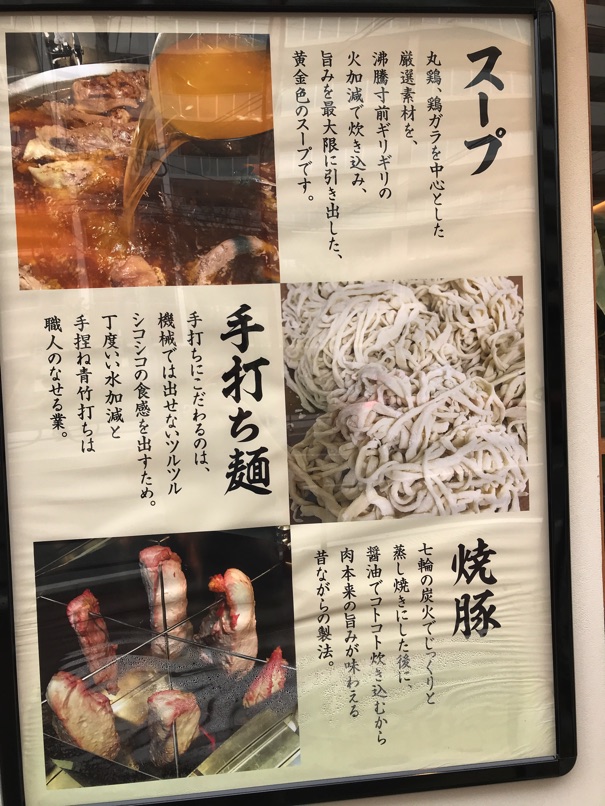 スープ
丸鶏、鶏ガラを中心とした
厳選素材を、
沸騰寸前ギリギリの
火加減で炊き込み、
旨みを最大限に引き出した、
黄金色のスープです。
手打ち麺
手打ちにこだわるのは、
機械では出せないツルツル
シコシコの食感を出すため。
丁度いい水加減と
手捏ね青竹打ちは
職人のなせる業。
焼豚
七輪の炭火でじっくりと
蒸し焼きにした後に、
醤油でコトコト炊き込むから
肉本来の旨みが味わえる
昔ながらの製法。